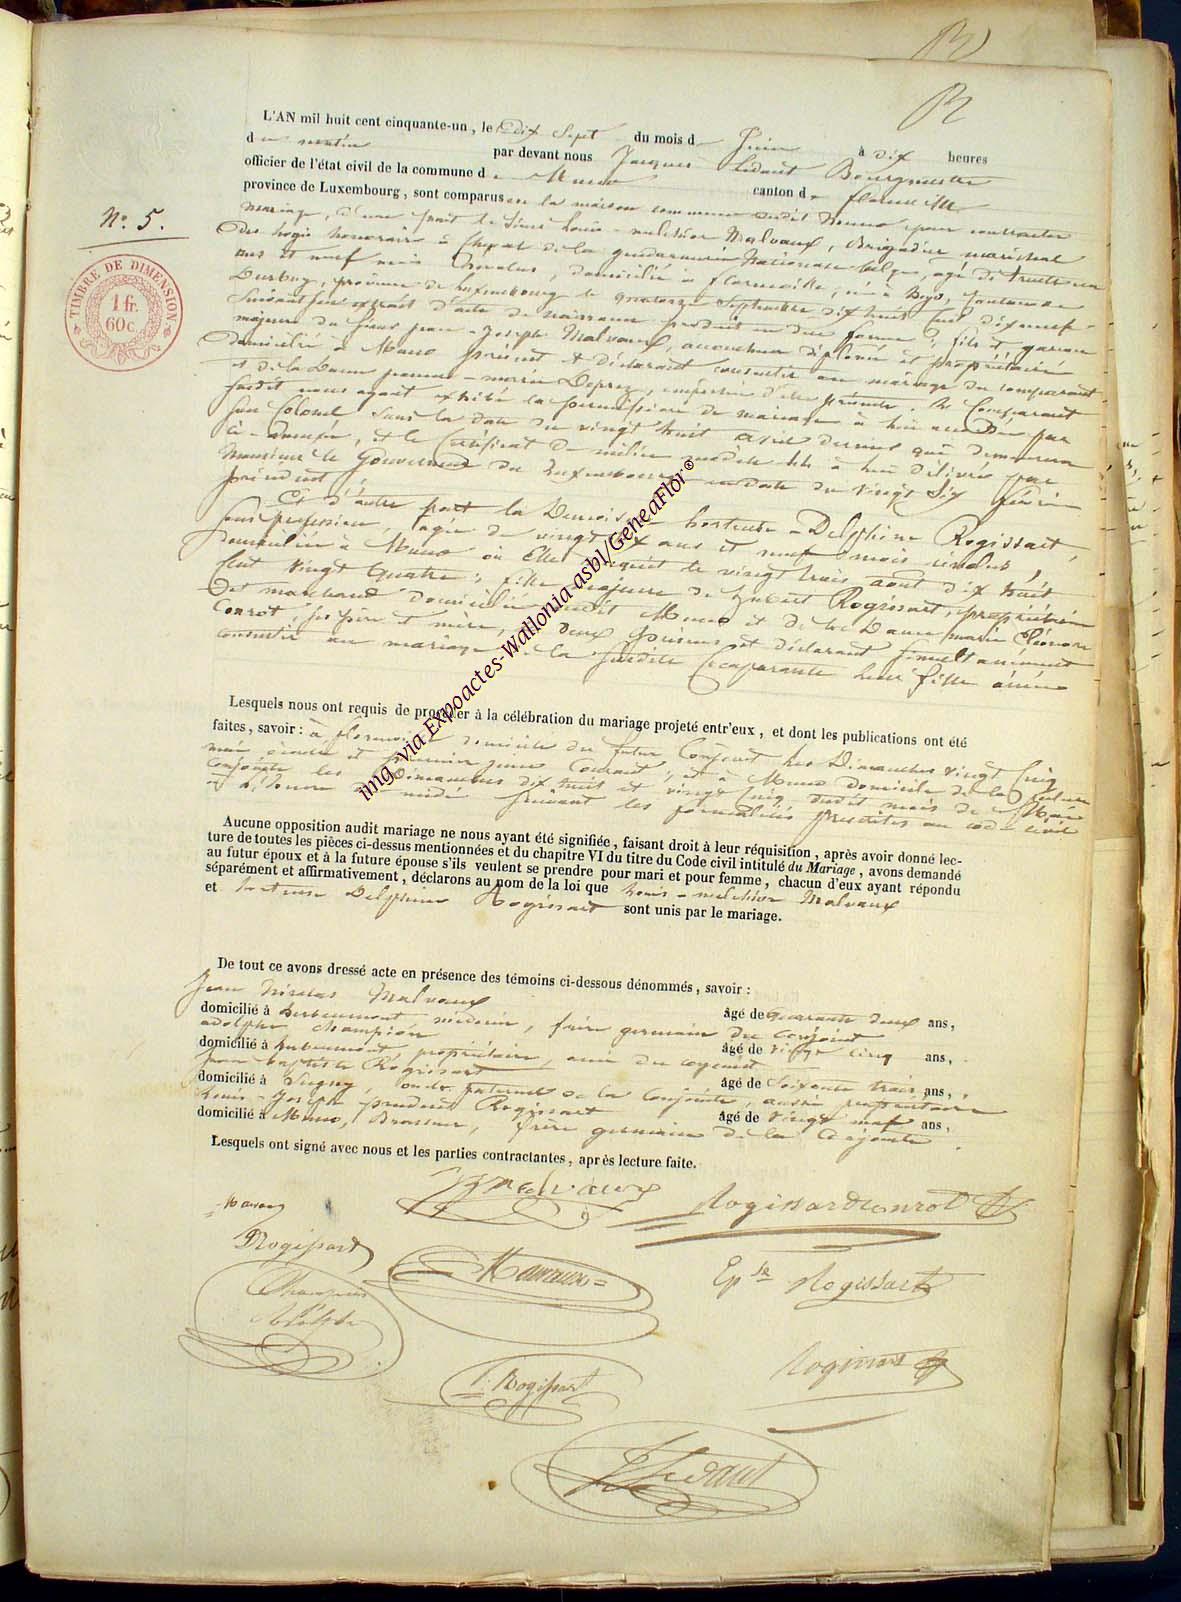 B
B
L'AN mil huit cent cinquante-un, le dix Sept du mois de Juin à dix heures
du matin par devant nous Jacques Ledant Bourgmestre
officier de l'état civil de la commune de Muno canton de Florenville
province de Luxembourg, sont comparus en la maison commune dudit Muno pour contracter
N° 5.
TIMBRE DE DIMENSION
1 fr.
60 c.
mariage, d'une part le Sieur Louis-melchior Malvaux, Brigadier maréchal
des logis honoraire à Cheval de la gendarmerie Nationale belge, agé de trente un
ans et neuf mois révolus, domicilié à florenville, né à
Durbuy, province de Luxembourg le quatorze Septembre dix huit Cent dixneuf
Suivant un extrait d'acte de naissance produit en due forme; fils et garçon
majeur du Sieur jean-Joseph Malvaux, accoucheur diplomé et propriétaire
domicilié à Muno présent et déclarant consentir au mariage du comparant
et de la Dame jeanne-marie Deprez, empêchée d'être présente. Le Comparant
Susdit nous ayant exhibé la permission de mariage à lui accordée par
son Colonel sous la date du vingt huit avril dernier qui demeurera
ci-annexée, et le Certificat de milice modèle à lui délivré par
Monsieur le Gouverneur du Luxembourg en date du vingt Six février
précédent.
Et d'autre part la Demoiselle hortense-Delphine Rogissart,
sans profession, agée de vingt six ans et neuf mois révolus,
domiciliée à Muno où Elle naquit le vingt trois aout dix huit
Cent vingt quatre; fille majeure de hubert Rogissart, propriétaire
et marchand domicilié audit Muno et de la Dame marie Eléonore
Conrot, ses père et mère, tous deux présens et déclarant Simultanément
consentir au mariage de la Susdite Comparante leur fille ainée
Lesquels nous ont requis de procéder à la célébration du mariage projeté entr'eux, et dont les publications ont été
faites, savoir: à florenville domicile du futur Conjoint les Dimanches vingt Cinq
mai écoulé et premier juin Courant; et à Muno domicile de la future
conjointe les Dimanches dix huit et vingt Cinq dudit mois de Mai
à l'heure de midi suivant les formalités prescrites au code civil
Aucune opposition audit mariage ne nous ayant été signifiée, faisant droit à leur réquisition, après avoir donné lec-
ture de toutes les pièces ci-dessus mentionnées et du chapitre VI du titre du Code civil intitulé du Mariage, avons demandé
au futur époux et à la future épouse s'ils veulent se prendre pour mari et pour femme, chacun d'eux ayant répondu
séparément et affirmativement, déclarons au nom de la loi que Louis-melchior Malvaux
et hortense Delphine Rogissart sont unis par le mariage.
De tout ce avons dressé acte en présence des témoins ci-dessous dénommés, savoir:
Jean Nicolas Malvaux âgé de quarante deux ans,
domicilié à herbeumont médecin, frère germain du conjoint
adolphe champion âgé de vingt cinq ans,
domicilié à herbeumont propriétaire, ami du conjoint
jean baptiste Rogissart âgé de Soixante trois ans,
domicilié à Sugny, oncle paternel de la conjointe, aussi propriétaire
Louis-Joseph prudent Rogissart âgé de vingt neuf ans,
domicilié à Muno, Brasseur, frère germain de la Conjointe.
Lesquels ont signé avec nous et les parties contractantes, après lecture faite.
Malvaux
Rogissart Conrot
Rogissart
Malvaux
Epse Rogissart
Champion
Adolphe
Rogissart
Rogissart
J Ledant
img via Expoactes-Wallonia asbl/GeneaFlor®